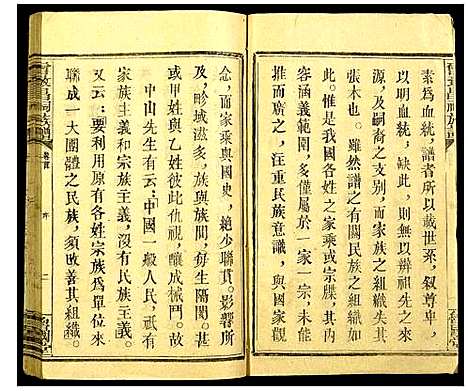 素爲血統、譜者所以載世系、叙尊卑、
以明血統、缺此、則無以辨祖先之來
源、及嗣裔之支别、而民族之組織失其
張本也。雖然譜之有關民族之組織如
此。惟是我國各姓之家乘與宗牒、其內
容涵義範圍、多僅屬於一家一宗、未能
推而廣之、注重民族意識、與國家觀
念、而家乘與國史、絶少聯貫。影響所
及、畛域滋多、族與族間、每生隔閡。甚
或甲姓與乙姓彼此仇視、釀成械鬥。故
中山先生有云：中國一般人民、祇有
家族主義和宗族主義、沒有民族主義。
又云：要利用原有各姓宗族爲單位來
聯成一大團體之民族、須改善其組織。
族譜
卷首
序
二